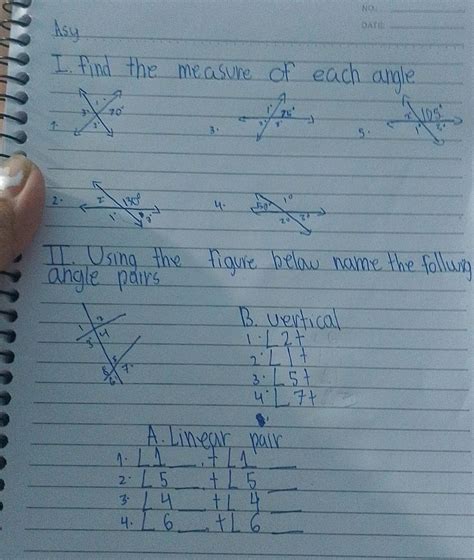 NO.:
DATE:
Asy
I. find the measure of each angle
1. 1' 70° 3' 2'
3. 1' 75° 3' 2'
5. 2' 105° 1' 3'
2. 2' 130° 1' 3'
4. 50° 1° 2° 3°
II. Using the figure below name the follwng
angle pairs
1 2 4 3
5 8 7 6
B. vertical
1. L2+
2. L1+
3. L5+
4. L7+
A. Linear pair
1. L1__+L1__
2. L5__+L5__
3. L4__+L4__
4. L6__+L6__